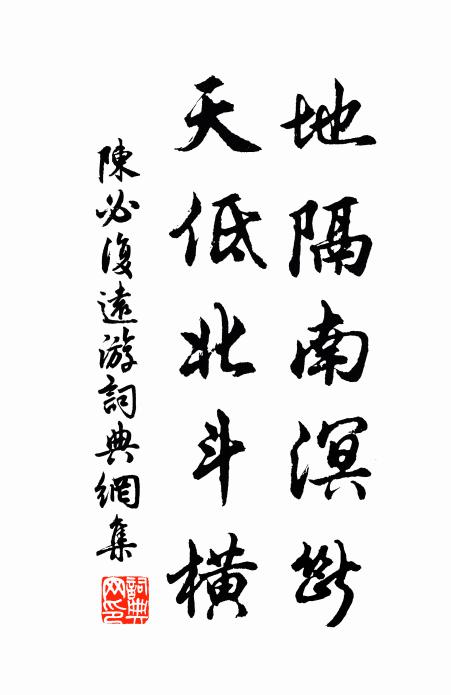 地隔南溟断
天低北斗橫
陳必復遠游詞典網集
詞典網印